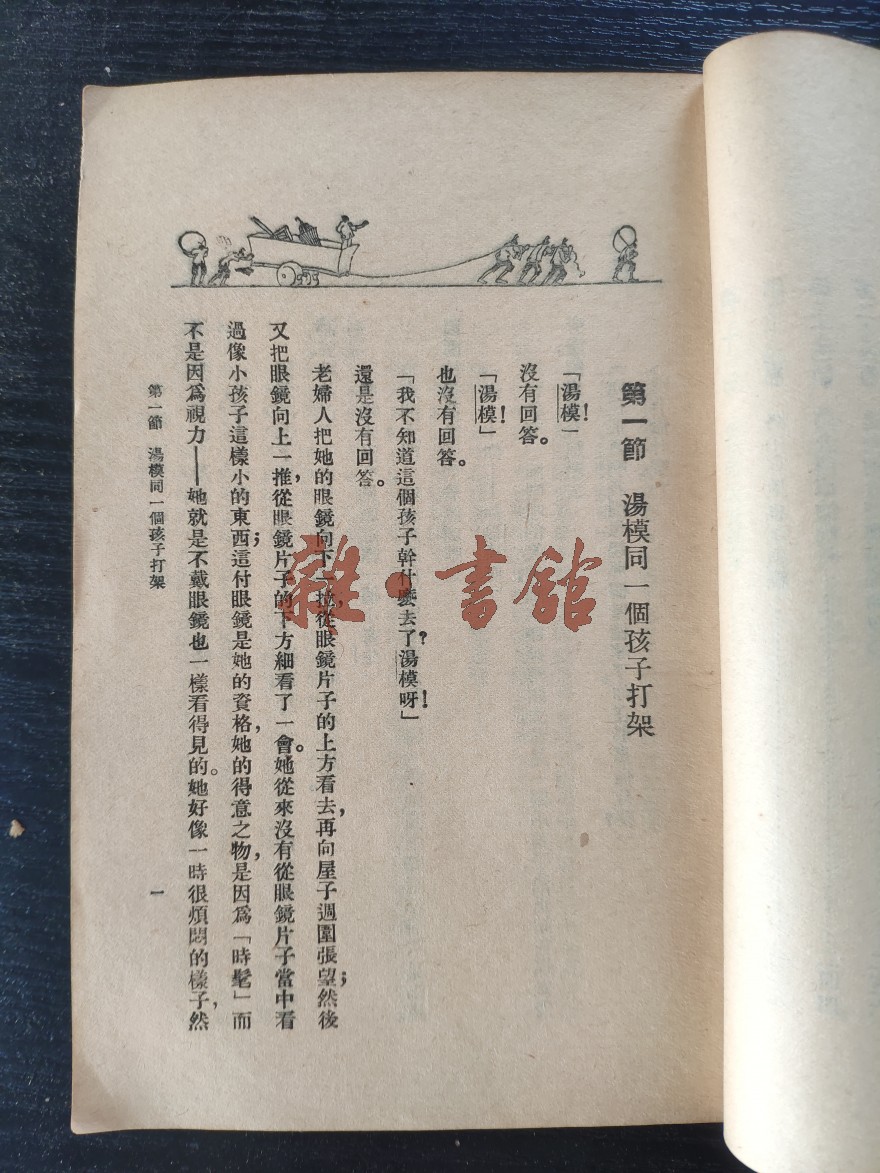 第一節　湯模同一個孩子打架
「湯模！」
沒有回答。
「湯模！」
也沒有回答。
「我不知道這個孩子幹什麼去了？湯模呀！」
還是沒有回答。
老婦人把她的眼鏡向下一拉，從眼鏡片子的上方看去，再向屋子週圍張望；然後
又把眼鏡向上一推，從眼鏡片子的下方細看了一會。她從來沒有從眼鏡片子當中看
過像小孩子這樣小的東西；這付眼鏡是她的資格，她的得意之物，是因爲「時髦」而
不是因爲視力——她就是不戴眼鏡也一樣看得見的。她好像一時很煩悶的樣子，然
第一節　湯模同一個孩子打架
一
雜·書館